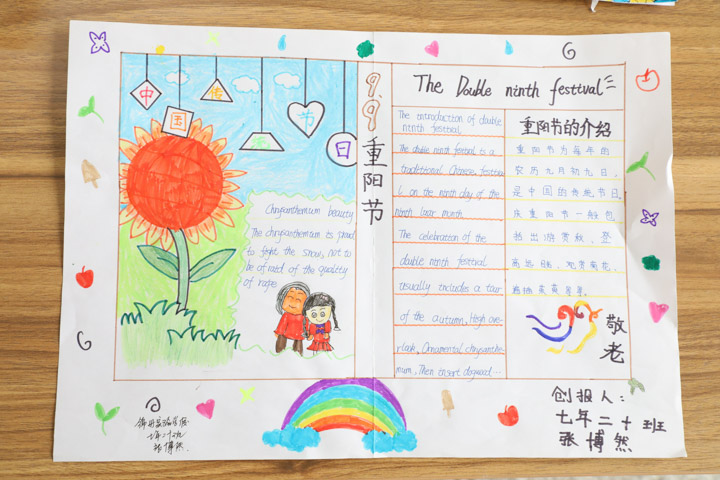 中
国
传
统
节
日
Chrysanthemum beauty
The chrysanthemum is proud
to fight the snow, not to
be afraid of the quality
of rape
9.9
重阳节
The Double ninth festtval
The introduction of double
ninth festival
The double ninth festival is a
traditional Chinese festiva
l on the ninth day of the
ninth lunar month
The celebration of the
double ninth festival
usually includes a tour
of the autumn, High ove-
rlook, Ornamental chrysanthe-
mum, Then insert dogwood...
重阳节的介绍
重阳节为每年的
农历九月初九日,
是中国的传统节日
庆重阳节一般包
括出游赏秋、登
高远眺、观赏菊花、
遍插茱萸等等
敬老
创报人:
七年二十班
张博然
张博然